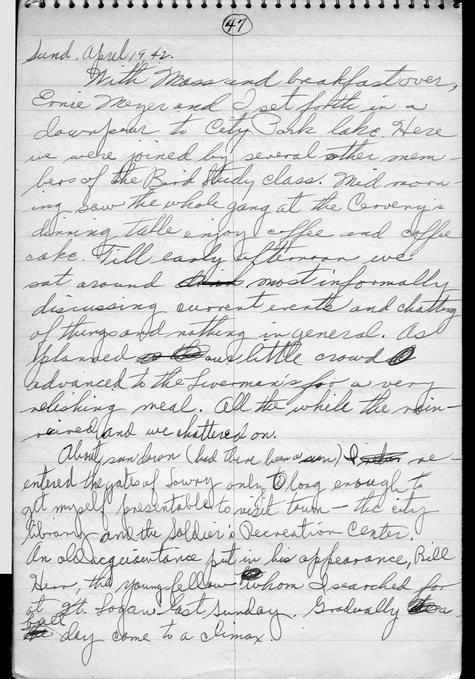 47
Sund. April 19 42.
With Mass and breakfast over,
Ernie Meyer and I set forth in a
downpour to City Park lake. Here
we were joined by several other mem-
bers of the Bird Study class. Mid morn-
ing saw the whole gang at the Cerveny's
dinning table enjoy coffee and coffee
cake. Till early afternoon we
sat around most informally
discussing current events and chatting
of things and nothing in general. As
planned our little crowd
advanced to the Liverman's for a very
relishing meal. All the while the rain-
rained and we chattered on.
About sun down (had there been a sun) I re-
entered the gates of Lowry only long enough to
get myself presentable to visit town — the city
library and the Soldier's Recreation Center.
An old acquaintance put in his appearance, Bill
Hern, the young fellow whom I searched for
at Ft. Logan last Sunday. Gradually a
day came to a climax.